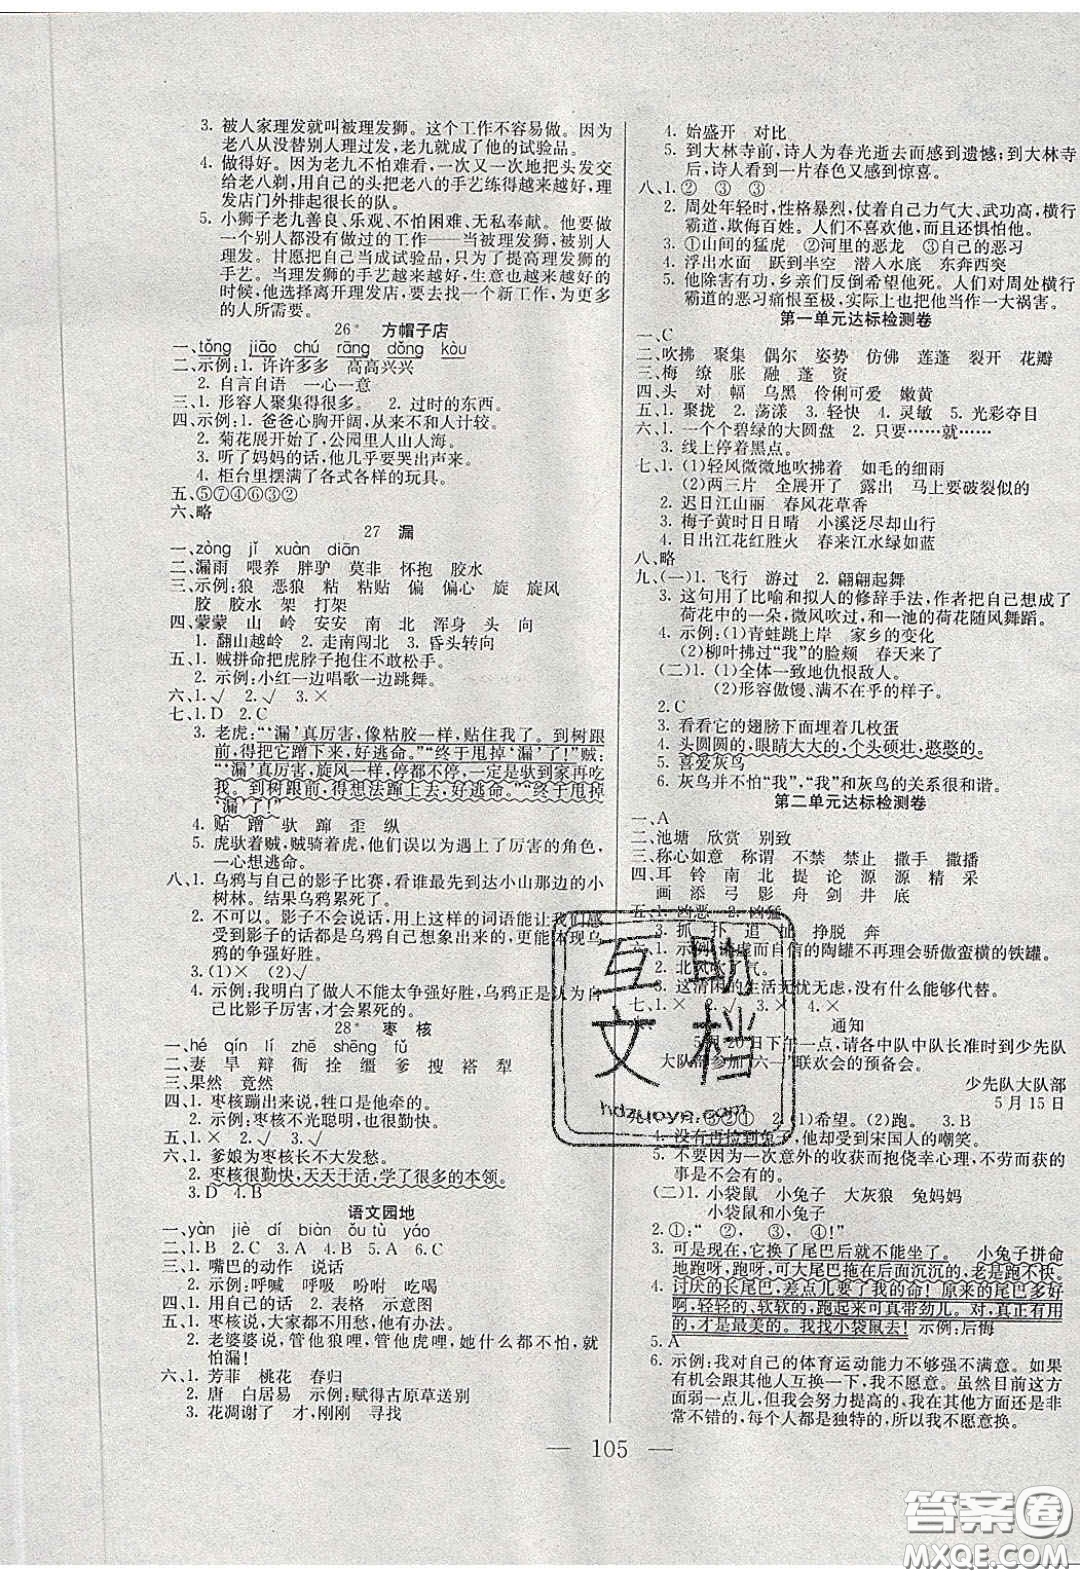 3. 被人家理发就叫被理发狮。这个工作不容易做。因为
老八从没替别人理过发，老九就成了他的试验品。
4. 做得好。因为老九不怕难看，一次又一次地把头发交
给老八剃，用自己的头把老八的手艺练得越来越好，理
发店门外排起很长的队。
5. 小狮子老九善良、乐观、不怕困难、无私奉献。他要去
做一个别人都没有做过的工作——当被理发狮，为人
理发。甘愿把自己当成试验品，只为了提高理发狮的
手艺。当理发狮的手艺越来越好，生意也越来越好的
时候，他选择离开理发店，要去找一个新工作，为更多
的人所需要。
26* 方帽子店
一、tǒng jiāo chú rāng dǒng kòu
二、示例：1. 许许多多 高高兴兴
2. 自言自语 一心一意
三、1. 形容人聚集得很多。 2. 过时的东西。
四、示例：1. 爸爸心胸开阔，从来不和人计较。
2. 菊花展开始了，公园里人山人海。
3. 听了妈妈的话，他几乎要哭出声来。
4. 柜台里摆满了各式各样的玩具。
五、⑤⑦④⑥③②
六、略
27 漏
一、zòng jǐ xuàn diān
二、漏雨 喂养 胖驴 莫非 怀抱 胶水
三、示例：狼 恶狼 粘 粘贴 偏 偏心 旋 旋风
胶 胶水 架 打架
四、蒙蒙 山 岭 安安 南 北 浑身 头 向
1. 翻山越岭 2. 走南闯北 3. 昏头转向
五、1. 贼拼命把虎脖子抱住不敢松手。
2. 示例：小红一边唱歌一边跳舞。
六、1. √ 2. √ 3. ×
七、1. D 2. C
3. 老虎：“‘漏’真厉害，像粘胶一样，贴住我了。到树跟
前，得把它蹭下来，好逃命。”“终于甩掉‘漏’了！”贼：
“‘漏’真厉害，旋风一样，停都不停，一定是驮到家再吃
我。到树跟前，得想法子蹿上树，好逃命。”“终于甩掉
‘漏’了！”
4. 贴 蹭 驮 蹿 歪 纵
5. 虎驮着贼，贼骑着虎，他们误以为遇上了厉害的角色，
一心想逃命。
八、1. 乌鸦与自己的影子比赛，看谁最先到达小山那边的小
树林。结果乌鸦累死了。
2. 不可以。影子不会说话，用上这样的词语能让我们感
受到影子的话都是乌鸦自己想象出来的，更能体现乌
鸦的争强好胜。
3. (1)× (2)√
4. 示例：我明白了做人不能太争强好胜，乌鸦正是认为自
己比影子厉害，才会累死的。
28* 枣 核
一、hé qín lí zhē shēng fǔ
二、妻 旱 辩 衙 拴 缰 爹 搜 褡 犁
三、果然 竟然
四、1. 枣核蹦出来说，牲口是他牵的。
2. 示例：枣核不光聪明，也很勤快。
五、1. × 2. √ 3. √
六、1. 爹娘为枣核长不大发愁。
2. 枣核很勤快，天天干活，学了很多的本领。
3. D 4. B
语文园地
一、yàn jiè dí biàn ǒu tù yáo
二、1. B 2. C 3. A 4. C
三、1. 嘴巴的动作 说话
2. 示例：呼喊 呼吸 吩咐 吃喝
四、1. 用自己的话 2. 表格 示意图
五、1. 枣核说，大家都不用愁，他有办法。
2. 老婆婆说，管他狼哩，管他虎哩，她什么都不怕，就
怕漏！
六、1. 芳菲 桃花 春归
2. 唐 白居易 示例：赋得古原草送别
3. 花凋谢了 才，刚刚 寻找
4. 始盛开 对比
5. 到大林寺前，诗人为春光逝去而感到遗憾；到大林寺
后，诗人看到一片春色又感到惊喜。
八、1. ② ③ ③
2. 周处年轻时，性格暴烈，仗着自己力气大、武功高，横行
霸道，欺侮百姓。人们不喜欢他，而且还惧怕他。
3. ①山间的猛虎 ②河里的恶龙 ③自己的恶习
4. 浮出水面 跃到半空 潜入水底 东奔西突
5. 他除害有功，乡亲们反倒希望他死。人们对周处横行
霸道的恶习痛恨至极，几乎把他当作一大祸害。
第一单元达标检测卷
一、C
二、吹拂 聚集 偶尔 姿势 仿佛 莲蓬 裂开 花瓣
三、梅 缭 胀 融 蓬 资
四、头 对 幅 乌黑 伶俐可爱 嫩黄
五、1. 聚拢 2. 荡漾 3. 轻快 4. 灵敏 5. 光彩夺目
六、1. 一个个碧绿的大圆盘 2. 只要……就……
3. 线上停着黑点。
七、1. (1)轻风微微地吹拂着 如毛的细雨
(2)两三片 全展开了 露出 马上要破裂似的
2. 迟日江山丽 春风花草香
3. 梅子黄时日日晴 小溪泛尽却山行
4. 日出江花红胜火 春来江水绿如蓝
八、略
九、(一)1. 飞行 游过 2. 翩翩起舞
3. 这句用了比喻和拟人的修辞手法，作者把自己想成了
荷花中的一朵，微风吹过，和一池的荷花随风舞蹈。
4. 示例：(1)青蛙跳上岸 家乡的变化
(2)柳叶拂过“我”的脸颊 春天来了
(二)1. (1)全体一致地仇恨敌人。
(2)形容傲慢、满不在乎的样子。
2. C
3. 看看它的翅膀下面埋着几枚蛋
4. 头圆圆的，眼睛大大的，个头硕壮，憨憨的。
5. 喜爱灰鸟
6. 灰鸟并不怕“我”，“我”和灰鸟的关系很和谐。
第二单元达标检测卷
一、A
二、池塘 欣赏 别致
三、称心如意 称谓 不禁 禁止 撒手 撒播
四、耳 铃 南 北 提 论 源 源 精 采
画 添 弓 影 舟 剑 井 底
五、1. 凶恶 2. 凶猛
3. 抓 扑 追 挣脱 奔
六、1. 示例：谦虚而自信的陶罐不再理会骄傲蛮横的铁罐。
2. 北风吹 了气。
3. 这清闲的生活无忧无虑，没有什么能够代替。
七、1. × 2. √ 3. × 4. ×
通知
5月20日下午一点，请各中队中队长准时到少先队
大队 参加“六一”联欢会的预备会。
少先队大队部
5月15日
③②① 2. (1)希望。(2)跑。 3. B
4. 没有再捡到兔子，他却受到宋国人的嘲笑。
5. 不要因为一次意外的收获而抱侥幸心理，不劳而获的
事是不会有的。
(二)1. 小袋鼠 小兔子 大灰狼 兔妈妈
小袋鼠和小兔子
2. ①：“ ②， ③， ④！”
3. 可是现在，它换了尾巴后就不能坐了。 小兔子拼命
地跑呀，跑呀，可大尾巴拖在后面沉沉的，老是跑不快。
4. 讨厌的长尾巴，差点儿要了我的命！原来的尾巴多好
啊，轻轻的、软软的，跑起来可真带劲儿。对，真正有用
的，才是最美的。我找小袋鼠去！ 示例：后悔
5. A
6. 示例：我对自己的体育运动能力不够强不满意。如果
有机会跟其他人互换一下，我不愿意。虽然目前这方
面弱一点儿，但我会努力提高的，我的其他方面还是非
常不错的，每个人都是独特的，所以我不愿意换。
— 105 —
互助
文档
hdzuoye.com
答案圈
MXQE.COM